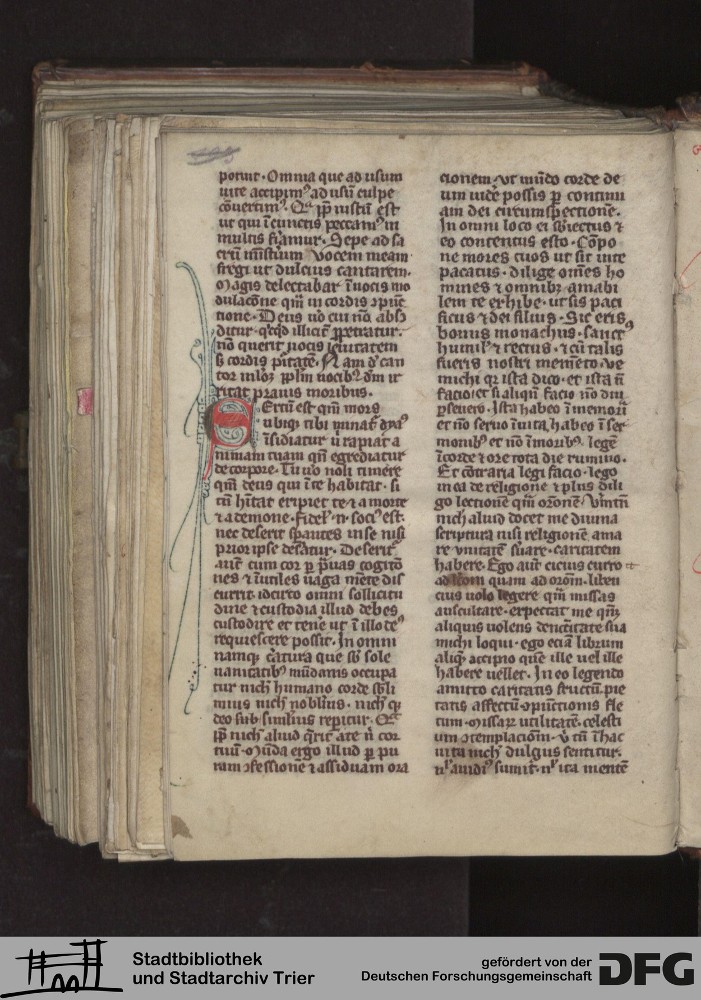 potuit · Omnia que ad usum
uite accipim⁹ ad usū culpe
cōuertim⁹ · Et ip̄i iustū est
ut qui ī cunctis peccam⁹ in
multis feriamur · Sepe ad sa
crū misterium uocem meam
fregi ut dulcius cantarem ·
Magis delectabar ī uocis mo
dulacōne qm̄ in cordis ꝯpūc
tione · Deus uō cui nō absō
ditur · qͥcqd illicite ꝑpetratur ·
nō querit uocis leuitatem
s; cordis pītatē · Nam dū can
tor inlicit pplm uocibꝰ dm̄ ir
ritat prauis moribus ·
Certū est qm̄ mors
ubiqꝫ tibi minat᷑ dyab⁹
īsidiatur ut rapiat a
nimam tuam qn̄ egrediatur
de corpore · Tu uō noli timere
qm̄ deus qui ī te habitat · si
tū hītat eripiet te & a morte
& a demone · Fidel' · n · soci⁹ est ·
nec deserit sperantes in se nisi
prior ipse deserātur · Deserit᷑
autē cum cor ꝑ prauas cogitō
nes & inutiles uaga mēte dis
currit · idcirco omni sollicitu
dine & custodia illud debes
custodire et tenē ut ī illo te⁹
requiescere possit · In omni
namqꝫ cātura que sb' sole
uanitatibꝰ mūdanis occupa
tur nich' humano corde sbli
mius nich' nobilius · nich' qͥ
deo sub · similius repitur · Et
ip̄i nich' aliud qͥrit a te n̄ cor
tuū · Mūda ergo illud ꝑ pu
ram ꝯfessionē & assiduam ora
cionem · ut mūdo corde de
um uidē possis ꝑ continu
am dei circumspectionē ·
In omni loco ei sbiectus &
eo contentus esto · Cōpo
ne mores tuos ut sit uite
pacatus · dilige omēs ho
mines & omnibꝫ amabi
lem te exhibe · ut sis paci
ficus & dei filius · Sic eris
bonus monachus · sanct⁹
humil' & rectus · & cū talis
fueris nostri memēto · Ve
michi qꝛ ista dico · et ista n̄
facio · et si aliqn̄ facio nō diu
ꝑseuero · Ista habeo ī memoria
et nō seruo ī uita · habeo ī ser
monibꝰ et nō ī moribꝰ · legē
ī corde & ore tota die rumino ·
Et cōtraria legi facio · lego
in ea de religione & plus dili
go lectionē qm̄ orōnē · Vmtū
nich' aliud docet me diuina
scriptura nisi religionē ama
re unitatē s'uare · caritatem
habere · Ego autē cicius curro
ad lcōm quam ad orōm · liben
cius uolo legere qm̄ missas
auscultare · expectat me qm̄qꝫ
aliquis uolens de necitate sua
michi loqui · ego eciā librum
aliqꝫ accipio quē ille uel ille
habere uellet · In eo legendo
amitto caritatis fructū · pie
tatis affectū · ꝯpūctionis fle
tum · missarꝫ utilitatē · celesti
um ꝯtemplaciōm · v̓ tn̄ ī hac
uita nich' dulcius sentitur ·
nl' auidi⁹ sumit᷑ · nl' ita mentē
Stadtbibliothek
und Stadtarchiv Trier
gefördert von der
Deutschen Forschungsgemeinschaft
DFG